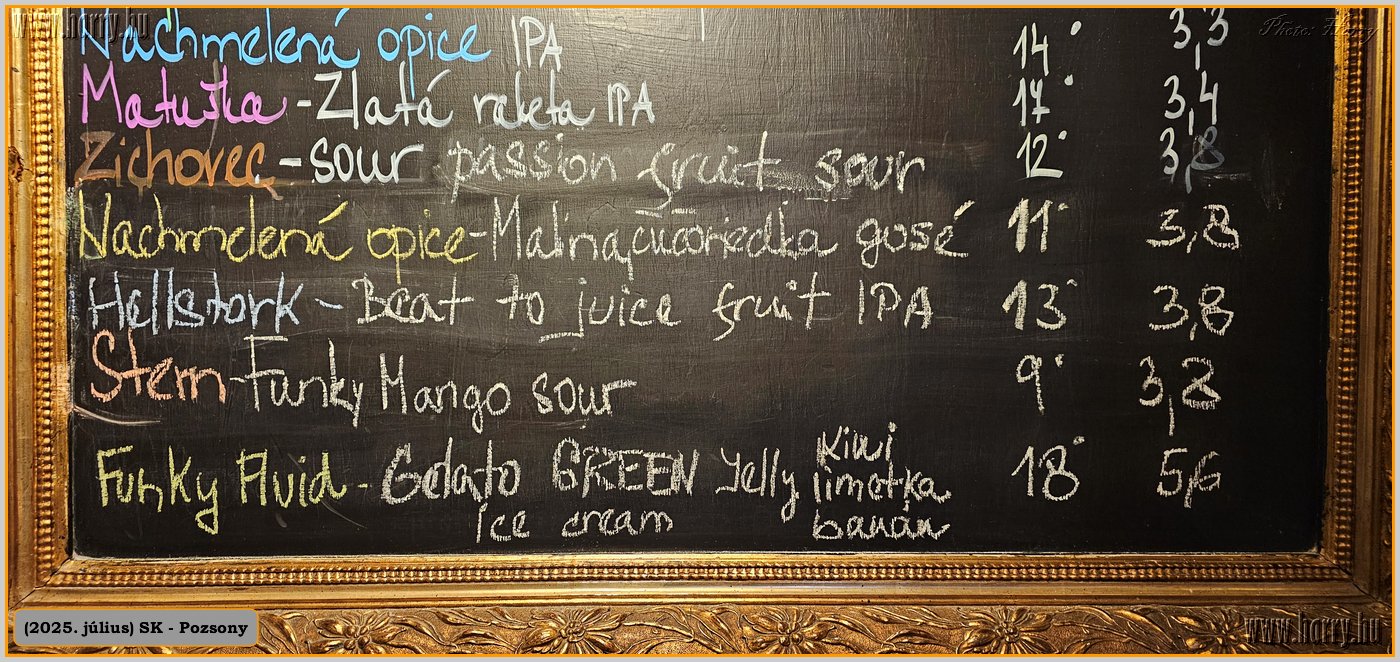 www.harry.hu
Photo: Harry
Nachmelená opice IPA 14° 3,3
Matuška - Zlatá raketa IPA 17° 3,4
Zichovec - sour passion fruit sour 12° 3,8
Nachmelená opice - Malina čučoriedka gosé 11° 3,8
Hellstork - Beat to juice fruit IPA 13° 3,8
Stern - Funky Mango sour 9° 3,8
Funky Fluid - Gelato GREEN Jelly Kiwi limetka 18° 5,6
Ice cream banán
(2025. július) SK - Pozsony
www.harry.hu